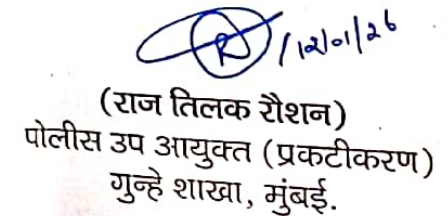 R /12/01/26
(राज तिलक रौशन)
पोलीस उप आयुक्त (प्रकटीकरण)
गुन्हे शाखा, मुंबई.